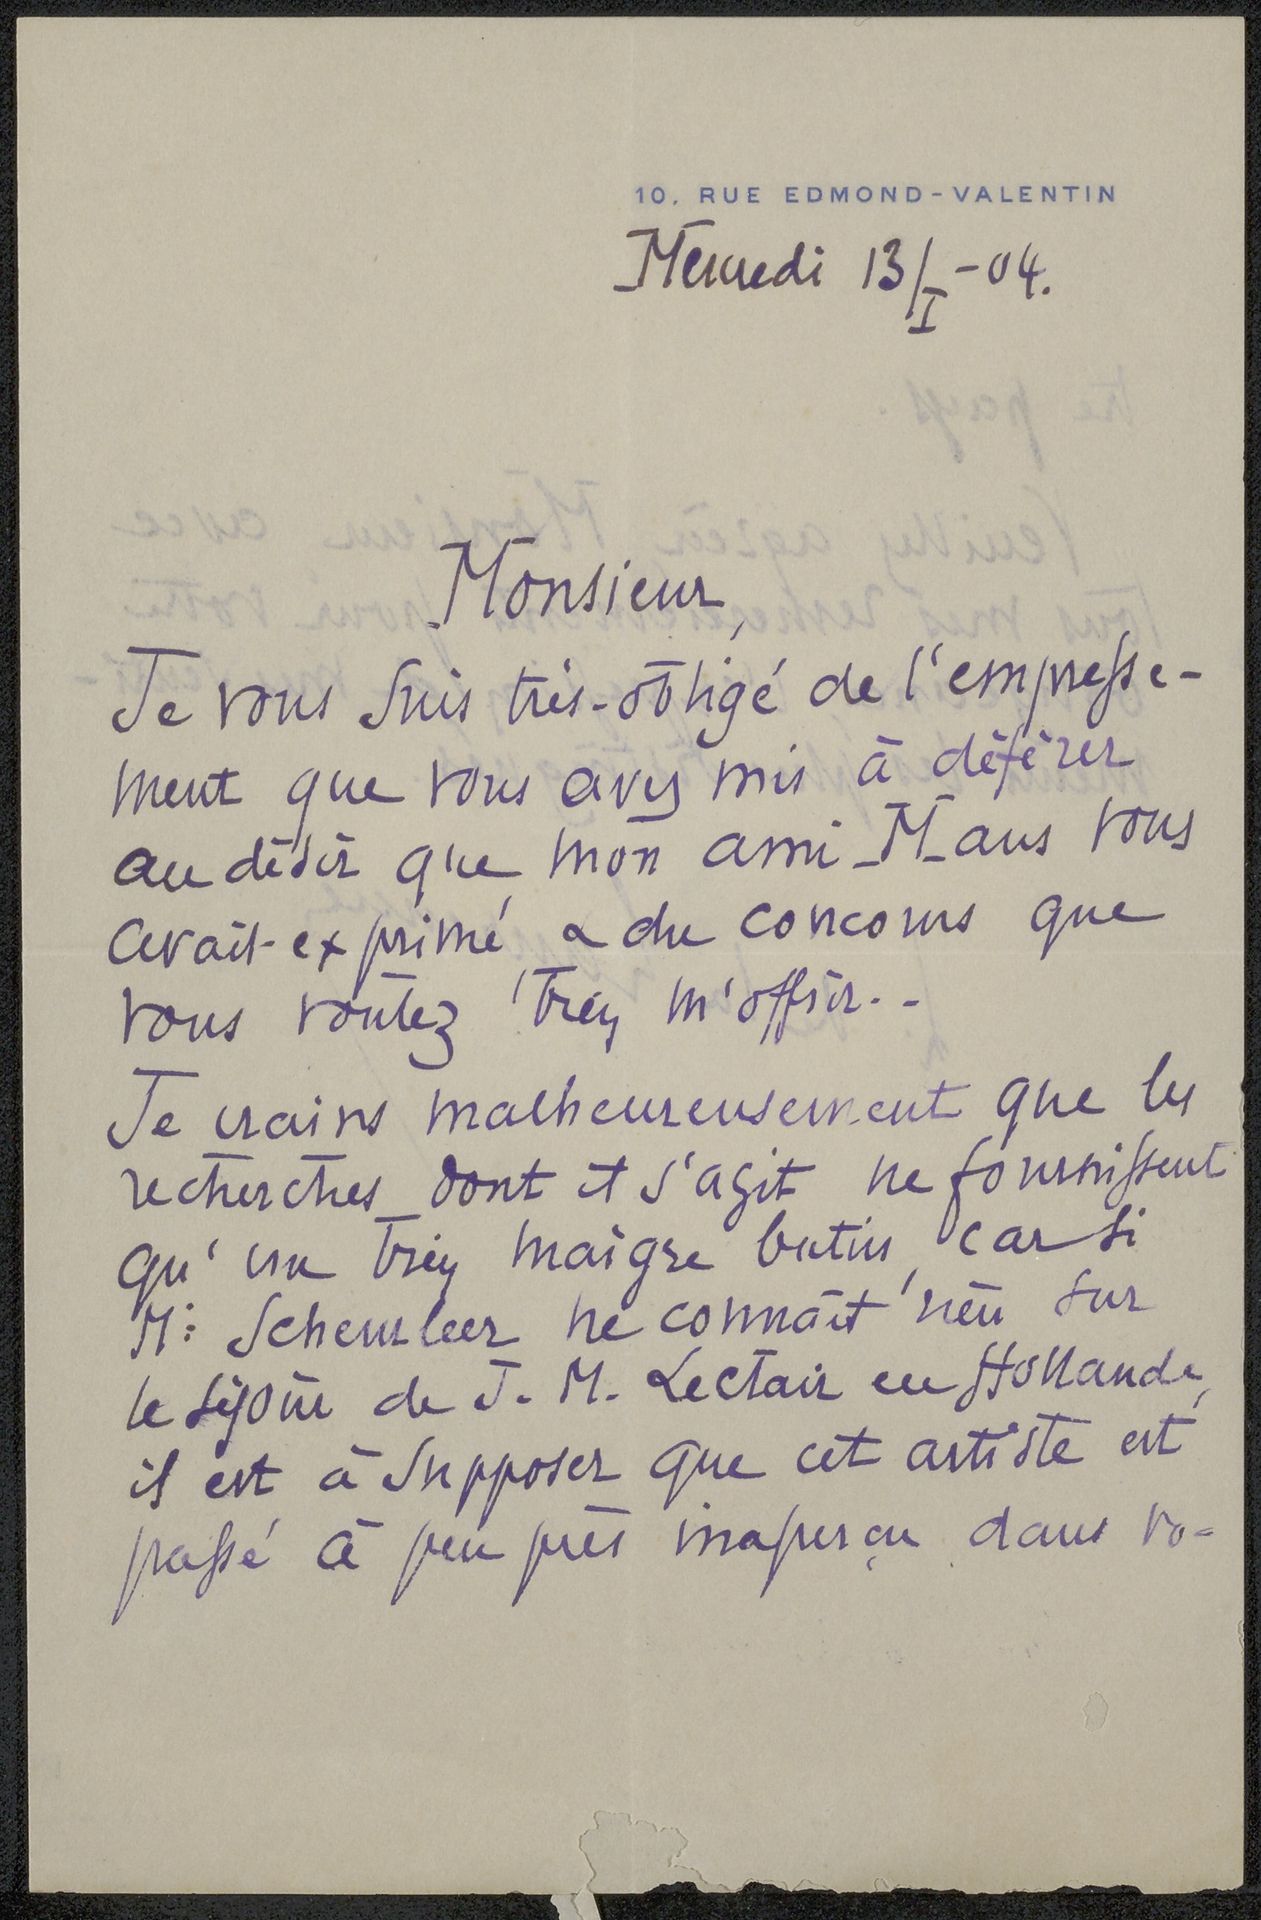 10, RUE EDMOND-VALENTIN
Mercredi 13/I-04.
Monsieur,
Je vous suis très-obligé de l'empresse-
ment que vous avez mis à déférer
au désir que mon ami Maus vous
avait exprimé, & du concours que
vous voulez bien m'offrir..
Je crains malheureusement que les
recherches dont il s'agit ne fournissent
qu'un bien maigre butin, car si
Mr Scheurleer ne connaît rien sur
le séjour de J. M. Leclair en Hollande,
il est à supposer que cet artiste est
passé à peu près inaperçu dans vo-